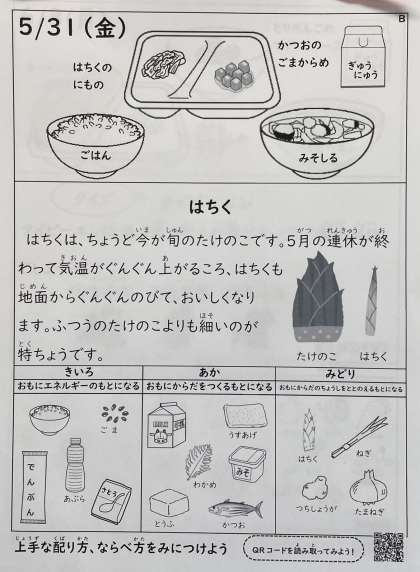 B
5/31(金)
はちくの
にもの
かつおの
ごまからめ
ぎゅう
にゅう
ごはん
みそしる
はちく
はちくは、ちょうど今が旬のたけのこです。5月の連休が終
わって気温がぐんぐん上がるころ、はちくも
地面からぐんぐんのびて、おいしくなり
ます。ふつうのたけのこよりも細いのが
特ちょうです。
たけのこ
はちく
きいろ
おもにエネルギーのもとになる
あか
おもにからだをつくるもとになる
みどり
おもにからだのちょうしをととのえるもとになる
ごま
でんぷん
あぶら
さとう
うすあげ
わかめ
みそ
とうふ
かつお
はちく
ねぎ
つちしょうが
たまねぎ
上手な配り方、ならべ方をみにつけよう
QRコードを読み取ってみよう!